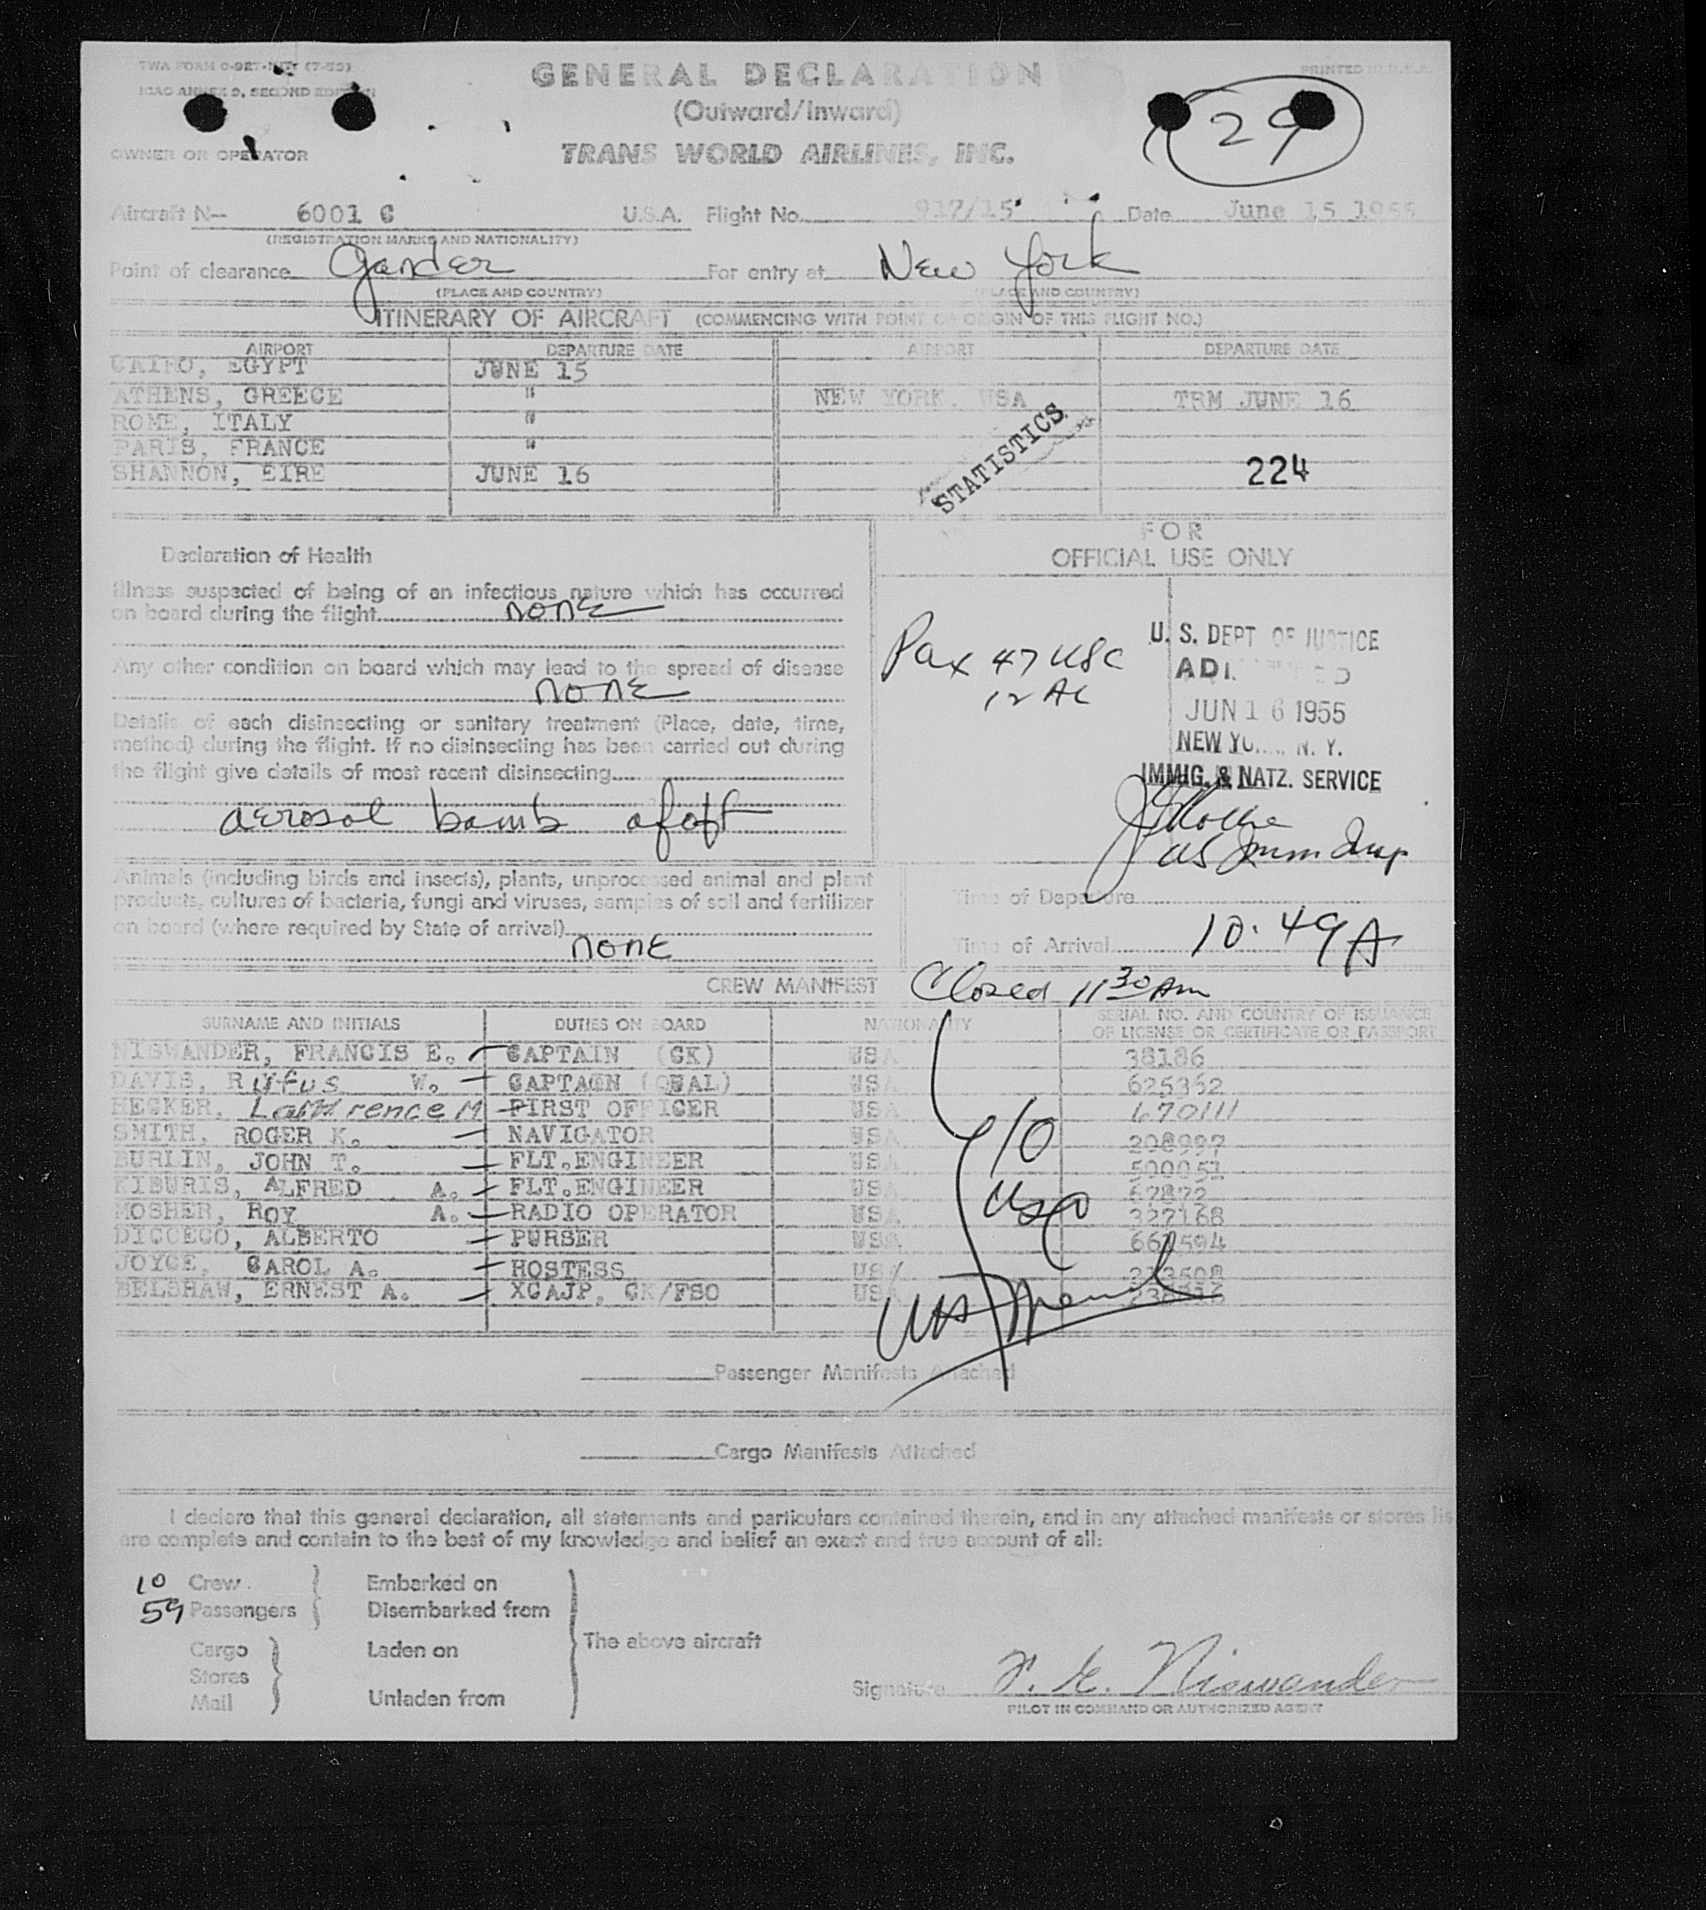 TWA FORM (7-55)
GENERAL DECLARATION
PRINTED IN U.S.A.
ICAO ANNEX 9, SECOND EDITION
(Outward/Inward)
29
OWNER OR OPERATOR
TRANS WORLD AIRLINES, INC.
Aircraft N-- 6001 C U.S.A. Flight No. 917/15 Date June 15 1955
(REGISTRATION MARKS AND NATIONALITY)
Point of clearance Gander For entry at New York
(PLACE AND COUNTRY) (PLACE AND COUNTRY)
ITINERARY OF AIRCRAFT (COMMENCING WITH POINT OF ORIGIN OF THIS FLIGHT NO.)
AIRPORT DEPARTURE DATE AIRPORT DEPARTURE DATE
CAIRO, EGYPT JUNE 15
ATHENS, GREECE " NEW YORK. USA TRM JUNE 16
ROME, ITALY "
PARIS, FRANCE "
SHANNON, EIRE JUNE 16
STATISTICS
224
FOR
OFFICIAL USE ONLY
Declaration of Health
Illness suspected of being of an infectious nature which has occurred
on board during the flight none
Any other condition on board which may lead to the spread of disease
none
Details of each disinsecting or sanitary treatment (Place, date, time,
method) during the flight. If no disinsecting has been carried out during
the flight give details of most recent disinsecting
aerosol bomb
Pax 47 USC
12 AL
U. S. DEPT OF JUSTICE
ADMITTED
JUN 16 1955
NEW YORK, N. Y.
IMMIG. & NATZ. SERVICE
US Imm Insp
Animals (including birds and insects), plants, unprocessed animal and plant
products, cultures of bacteria, fungi and viruses, samples of soil and fertilizer
on board (where required by State of arrival) none
Time of Departure
Time of Arrival 10.49 A
CREW MANIFEST Closed 11 30 Am
SURNAME AND INITIALS DUTIES ON BOARD NATIONALITY SERIAL NO. AND COUNTRY OF ISSUANCE
OF LICENSE OR CERTIFICATE OR PASSPORT
NISWANDER, FRANCIS E. CAPTAIN (CK) USA 38186
DAVIS, Rufus W. CAPTAIN (QUAL) USA 625352
HECKER, Lawrence M FIRST OFFICER USA 670111
SMITH, ROGER K. NAVIGATOR USA 208997
BURLIN, JOHN T. FLT.ENGINEER USA 500051
KIBURIS, ALFRED A. FLT.ENGINEER USA 67872
MOSHER, ROY A. RADIO OPERATOR USA 327168
DICCECO, ALBERTO PURSER USA
JOYCE, CAROL A. HOSTESS USA
BELSHAW, ERNEST A. XCAJP, CK/FSO USA
10
USC
Passenger Manifests Attached
Cargo Manifests Attached
I declare that this general declaration, all statements and particulars contained therein, and in any attached manifests or stores lis
are complete and contain to the best of my knowledge and belief an exact and true account of all:
10 Crew Embarked on
59 Passengers Disembarked from
The above aircraft
Cargo Laden on
Stores
Mail Unladen from
Signature F. E. Niswander
PILOT IN COMMAND OR AUTHORIZED AGENT